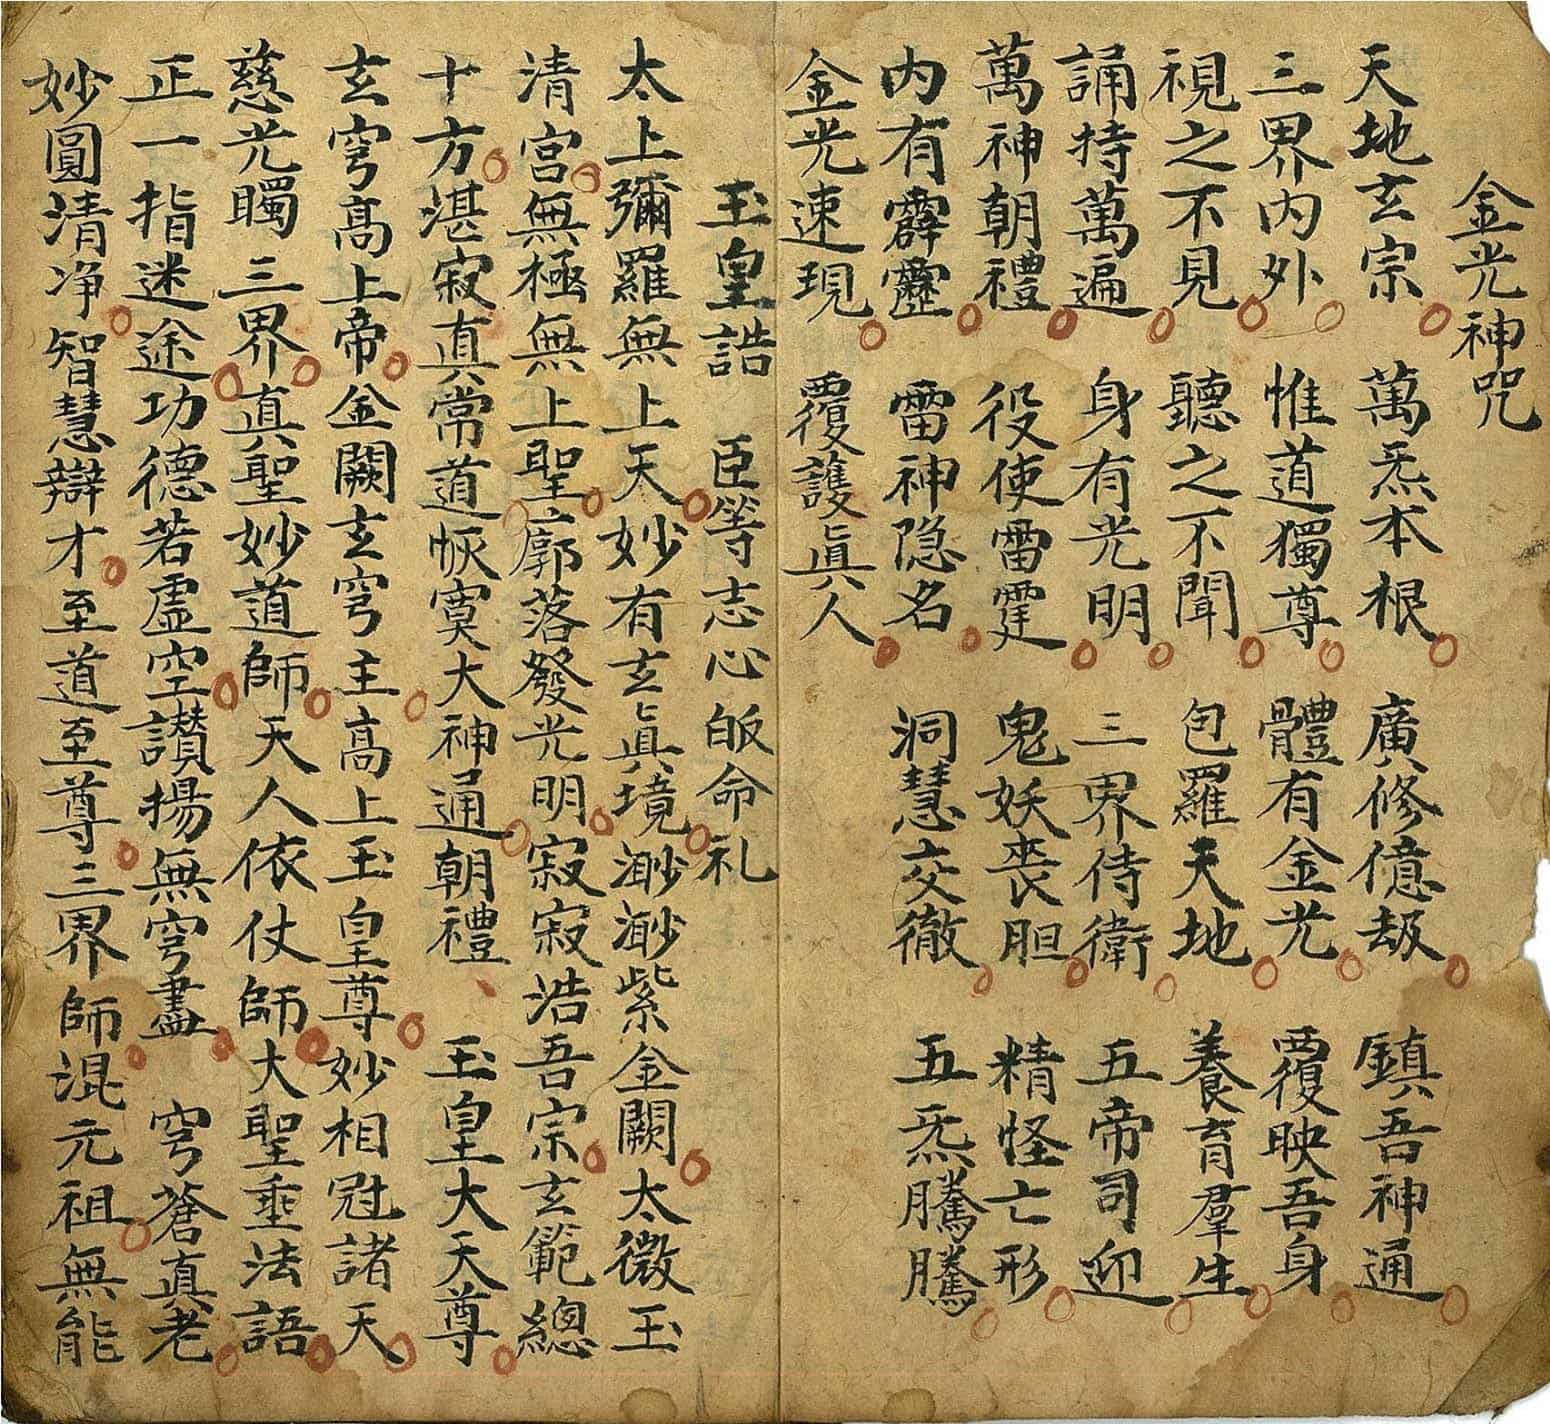 金光神咒
天地玄宗 萬炁本根 廣修億劫 鎮吾神通
三界內外 惟道獨尊 體有金光 覆映吾身
視之不見 聽之不聞 包羅天地 養育羣生
誦持萬遍 身有光明 三界侍衛 五帝司迎
萬神朝禮 役使雷霆 鬼妖喪胆 精怪亡形
內有霹靂 雷神隐名 洞慧交徹 五炁騰騰
金光速現 覆護真人
玉皇誥 臣等志心皈命礼
太上彌羅無上天妙有玄真境渺渺紫金闕太微玉
清宮無極無上聖廓落發光明寂寂浩吾宗玄範總
十方湛寂真常道恢寞大神通朝禮 玉皇大天尊
玄穹高上帝金闕玄穹主高上玉皇尊妙相冠諸天
慈光矚三界真聖妙道師天人依仗師大聖垂法語
正一指迷途功德若虛空讃揚無窮盡 穹蒼真老
妙圓清净智慧辯才至道至尊三界師混元祖無能